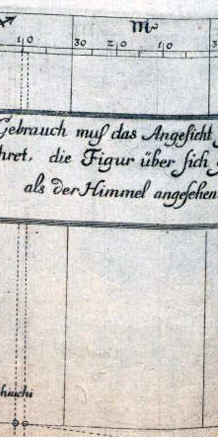 ♏
10 30 20 10 3
Gebrauch muß das Angesicht
hret, die Figur über sich
als der Himmel angesehen